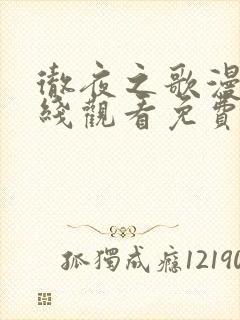 徹夜之歌漫
綫觀看免費
孤獨成癮12190